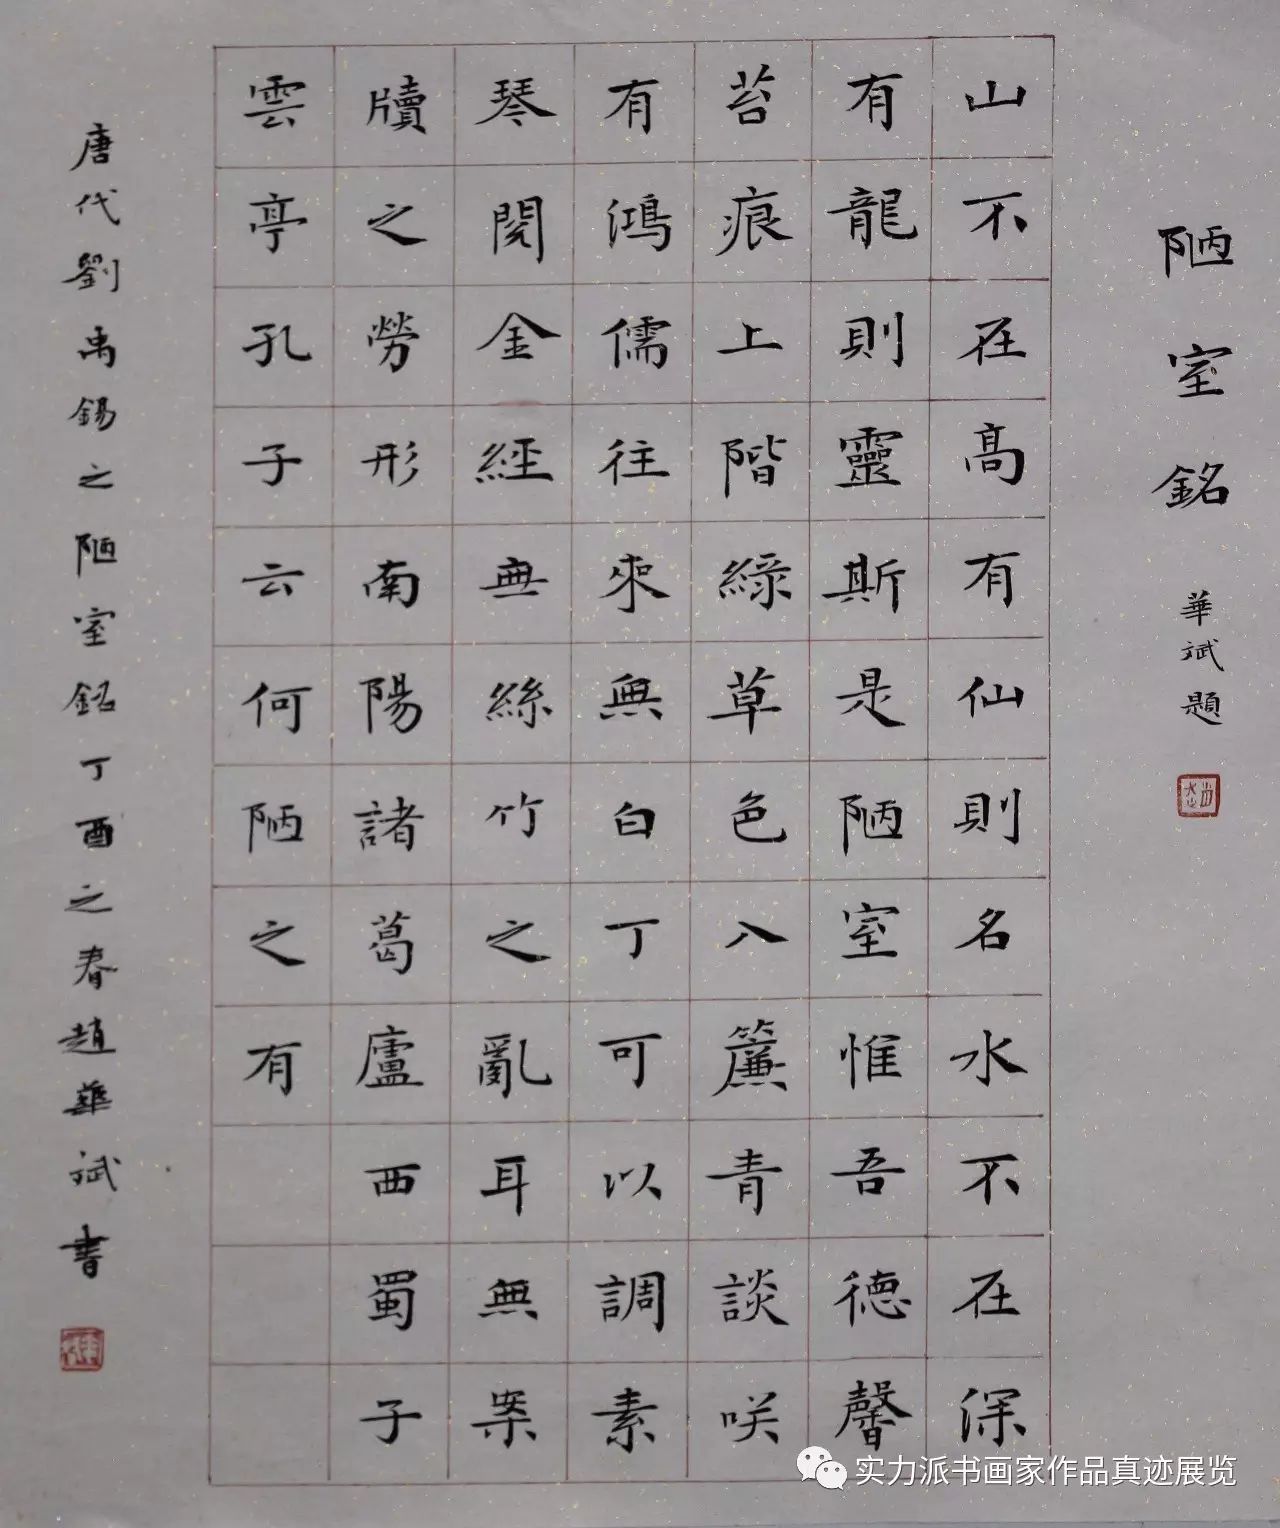 陋室銘 華斌題
山不在高有仙則名水不在深
有龍則靈斯是陋室惟吾德馨
苔痕上階綠草色入簾青談咲
有鴻儒往來無白丁可以調素
琴閱金經無絲竹之亂耳無案
牘之勞形南陽諸葛廬西蜀子
雲亭孔子云何陋之有
唐代劉禹錫之陋室銘丁酉之春趙華斌書
实力派书画家作品真迹展览